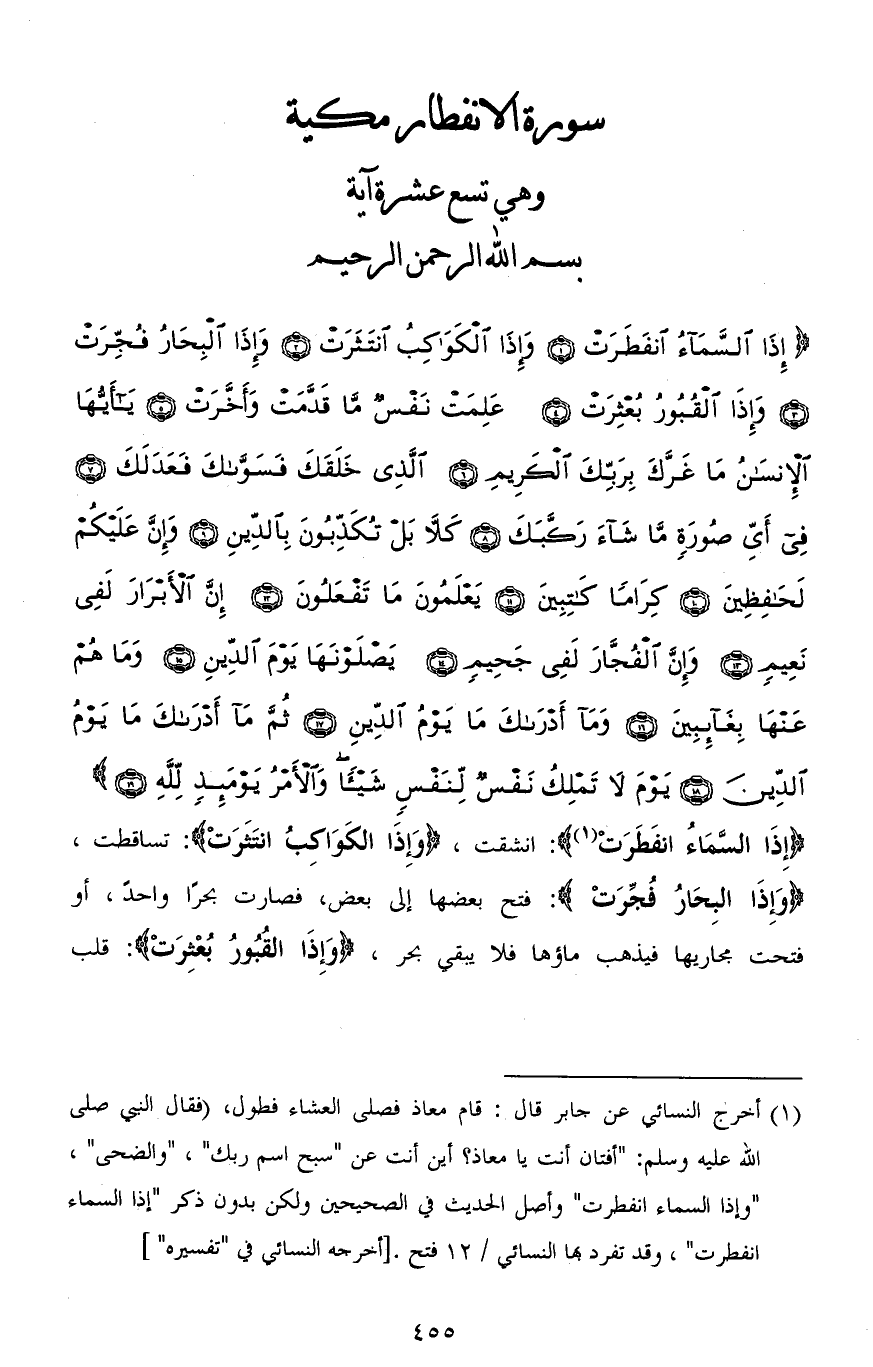 سورة الانفطار مكية
وهي تسع عشرة آية
بسم الله الرحمن الرحيم
﴿ إِذَا ٱلسَّمَآءُ ٱنفَطَرَتْ ۝١ وَإِذَا ٱلْكَوَاكِبُ ٱنتَثَرَتْ ۝٢ وَإِذَا ٱلْبِحَارُ فُجِّرَتْ
۝٣ وَإِذَا ٱلْقُبُورُ بُعْثِرَتْ ۝٤ عَلِمَتْ نَفْسٌ مَّا قَدَّمَتْ وَأَخَّرَتْ ۝٥ يَـٰٓأَيُّهَا
ٱلْإِنسَـٰنُ مَا غَرَّكَ بِرَبِّكَ ٱلْكَرِيمِ ۝٦ ٱلَّذِى خَلَقَكَ فَسَوَّىٰكَ فَعَدَلَكَ ۝٧
فِىٓ أَىِّ صُورَةٍ مَّا شَآءَ رَكَّبَكَ ۝٨ كَلَّا بَلْ تُكَذِّبُونَ بِٱلدِّينِ ۝٩ وَإِنَّ عَلَيْكُمْ
لَحَـٰفِظِينَ ۝١٠ كِرَامًا كَـٰتِبِينَ ۝١١ يَعْلَمُونَ مَا تَفْعَلُونَ ۝١٢ إِنَّ ٱلْأَبْرَارَ لَفِى
نَعِيمٍ ۝١٣ وَإِنَّ ٱلْفُجَّارَ لَفِى جَحِيمٍ ۝١٤ يَصْلَوْنَهَا يَوْمَ ٱلدِّينِ ۝١٥ وَمَا هُمْ
عَنْهَا بِغَآئِبِينَ ۝١٦ وَمَآ أَدْرَىٰكَ مَا يَوْمُ ٱلدِّينِ ۝١٧ ثُمَّ مَآ أَدْرَىٰكَ مَا يَوْمُ
ٱلدِّينِ ۝١٨ يَوْمَ لَا تَمْلِكُ نَفْسٌ لِّنَفْسٍ شَيْـًٔا ۖ وَٱلْأَمْرُ يَوْمَئِذٍ لِّلَّهِ ۝١٩ ﴾
﴿إِذَا السَّمَاءُ انفَطَرَتْ(١)﴾: انشقت ، ﴿وَإِذَا الكَوَاكِبُ انتَثَرَتْ﴾: تساقطت ،
﴿وَإِذَا البِحَارُ فُجِّرَتْ ﴾: فتح بعضها إلى بعض، فصارت بحرًا واحدً ، أو
فتحت مجاريها فيذهب ماؤها فلا يبقي بحر ، ﴿وَإِذَا القُبُورُ بُعْثِرَتْ﴾: قلب
(١) أخرج النسائي عن جابر قال : قام معاذ فصلى العشاء فطول، (فقال النبي صلى
الله عليه وسلم: "أفتان أنت يا معاذ؟ أين أنت عن "سبح اسم ربك" ، "والضحى" ،
"وإذا السماء انفطرت" وأصل الحديث في الصحيحين ولكن بدون ذكر "إذا السماء
انفطرت" ، وقد تفرد بها النسائي / ١٢ فتح .[أخرجه النسائي في "تفسيره" ]
٤٥٥